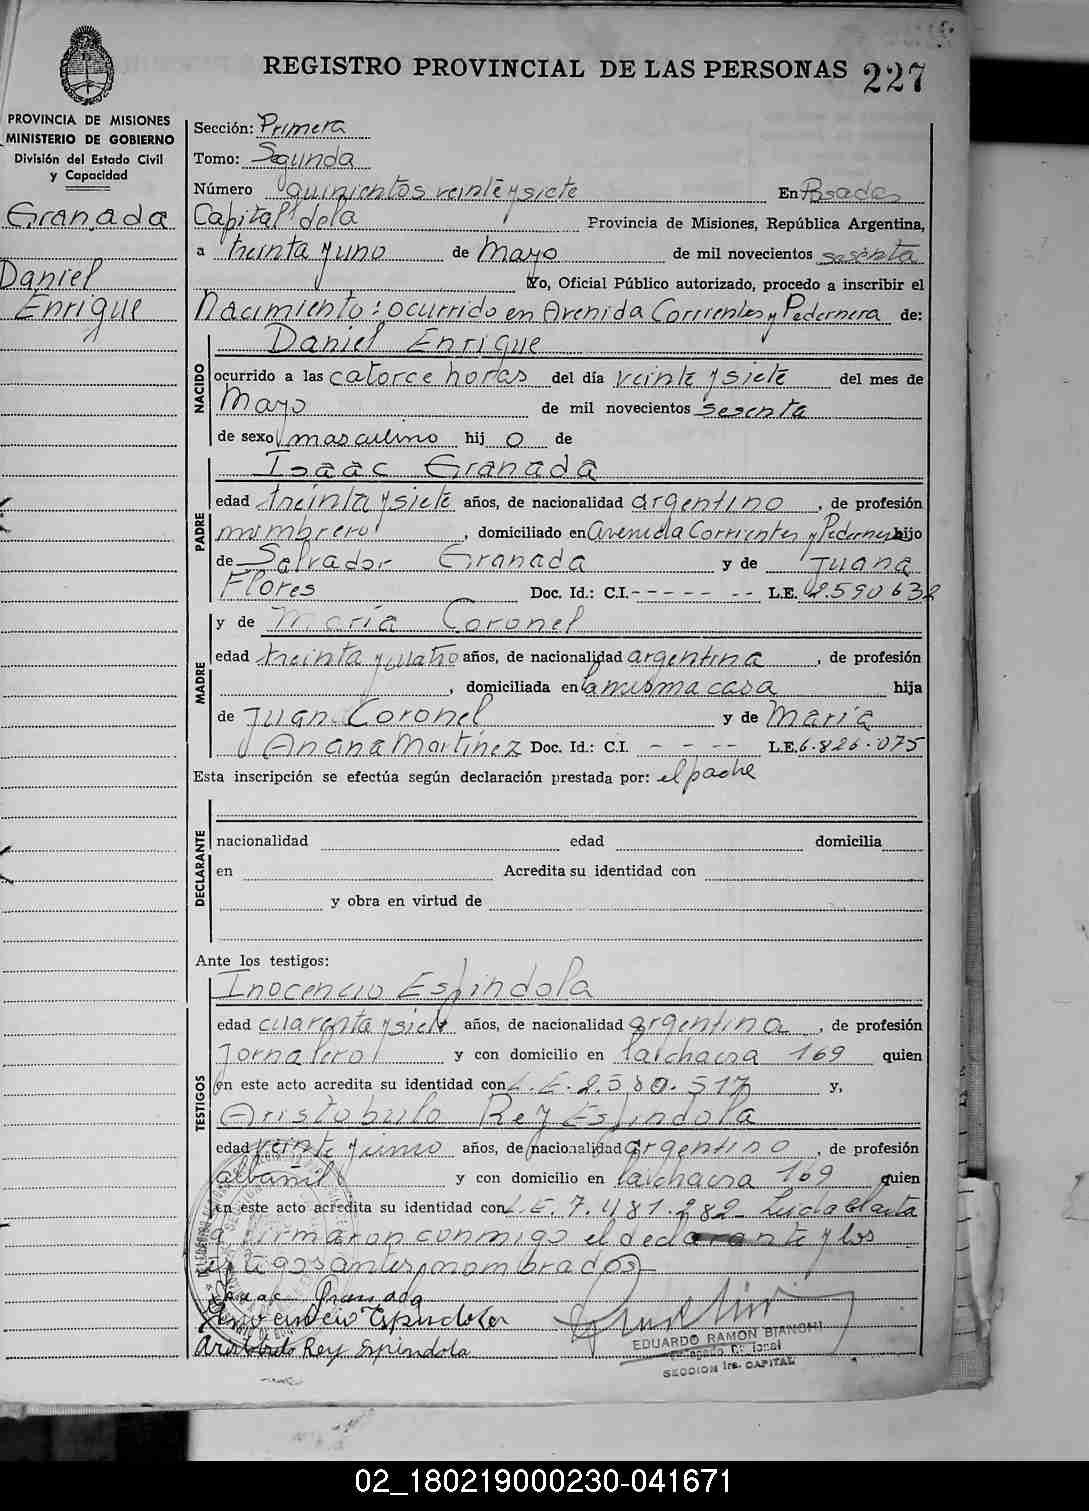 REGISTRO PROVINCIAL DE LAS PERSONAS 227
PROVINCIA DE MISIONES
MINISTERIO DE GOBIERNO
División del Estado Civil
y Capacidad
Granada
Daniel
Enrique
Sección: Primera
Tomo: Segunda
Número quinientos veinte y siete En Posadas
Capital de la Provincia de Misiones, República Argentina,
a treinta y uno de Mayo de mil novecientos sesenta
Yo, Oficial Público autorizado, procedo a inscribir el
Nacimiento: ocurrido en Avenida Corrientes y Pedernera de:
NACIDO
Daniel Enrique
ocurrido a las catorce horas del día veinte y siete del mes de
Mayo de mil novecientos sesenta
de sexo masculino hij o de
PADRE
Isaac Granada
edad treinta y siete años, de nacionalidad argentino, de profesión
domiciliado en Avenida Corrientes y Pedernera hijo
de Salvador Granada y de Juana
Flores Doc. Id.: C.I. - - - - - - - L.E. 2.590.632
MADRE
y de María Coronel
edad treinta y cuatro años, de nacionalidad argentina, de profesión
, domiciliada en la misma casa hija
de Juan Coronel y de María
Martínez Doc. Id.: C.I. - - - - L.E. 6.826.075
Esta inscripción se efectúa según declaración prestada por: el padre
DECLARANTE
nacionalidad edad domicilia
en Acredita su identidad con
y obra en virtud de
Ante los testigos:
TESTIGOS
Inocencio Espindola
edad cuarenta y siete años, de nacionalidad argentina, de profesión
Jornalero y con domicilio en la chacra 169 quien
en este acto acredita su identidad con L.E. 2.580.517 y,
Aristobulo Rey Espindola
edad veinte y cinco años, de nacionalidad argentino, de profesión
albañil y con domicilio en la chacra 169 quien
en este acto acredita su identidad con L.E. 7.481.282 - Leida el acta
la firmaron conmigo el declarante y los
testigos antes nombrados
Isaac Granada
Inocencio Espindola
Aristobulo Rey Espindola
EDUARDO RAMON BIANCHI
Delegado Seccional
SECCION 1ra. CAPITAL
02_180219000230-041671